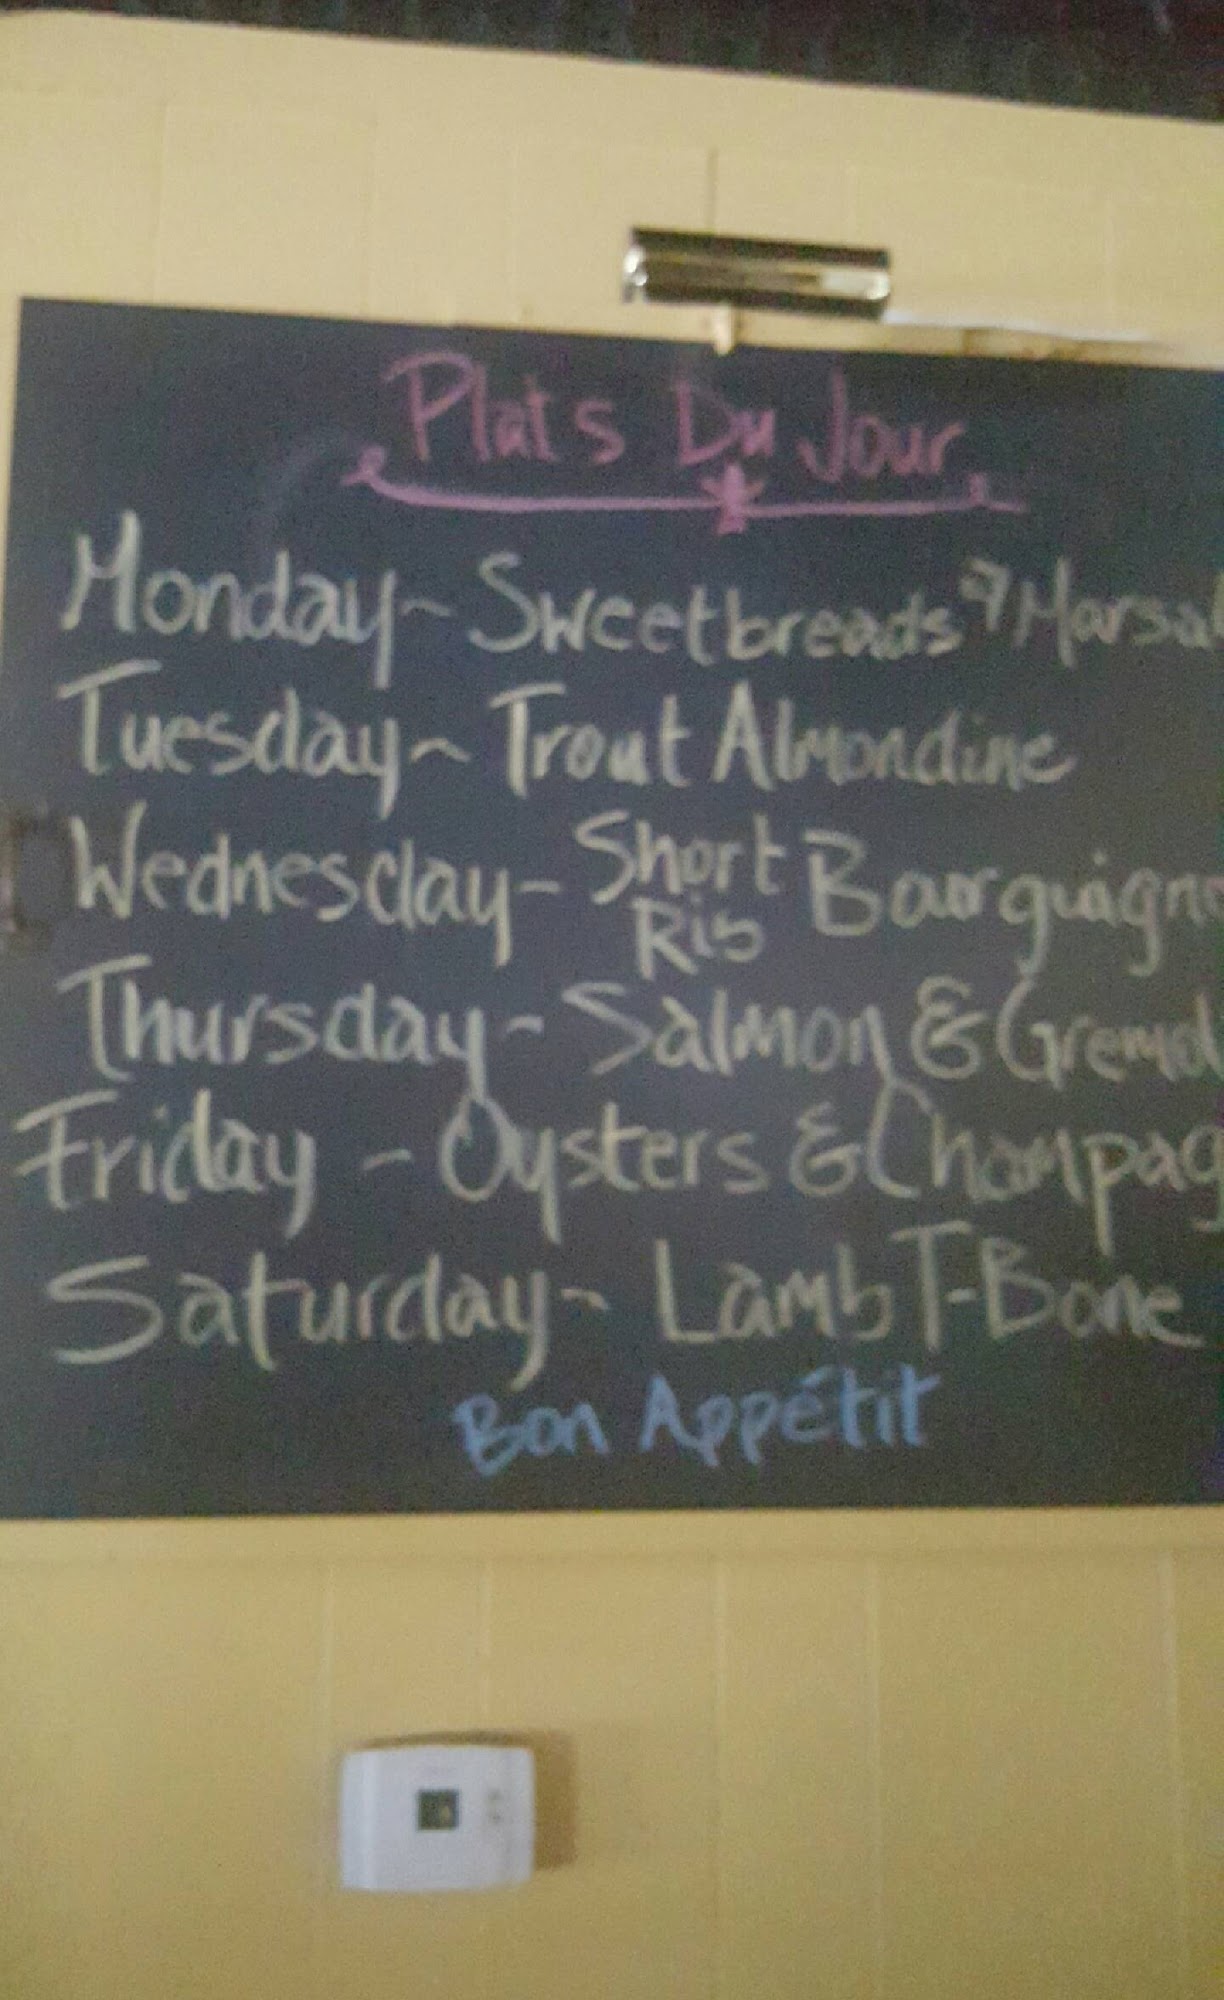 Plats Du Jour
Monday ~ Sweetbreads & Marsal
Tuesday ~ Trout Almondine
Wednesday - Short Rib Bourguigno
Thursday - Salmon & Gremol
Friday - Oysters & Champag
Saturday ~ Lamb T-Bone
Bon Appétit